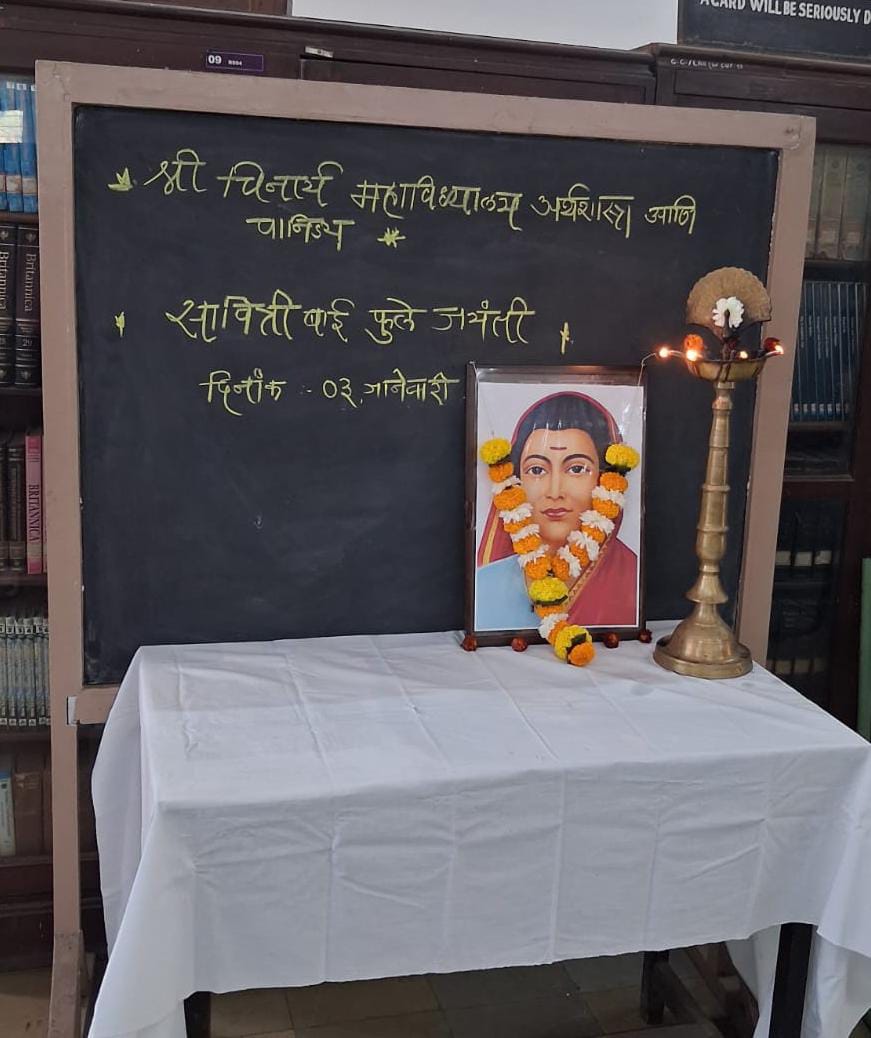 09
A CARD WILL BE SERIOUSLY D
श्री चिनार्य महाविध्यालय अर्थशास्त्र
वानिज्य
सावित्री बाई फुले जयंती
दिनांक :- ०३ जानेवारी
Britannica
Britannica
29
BRITANNICA